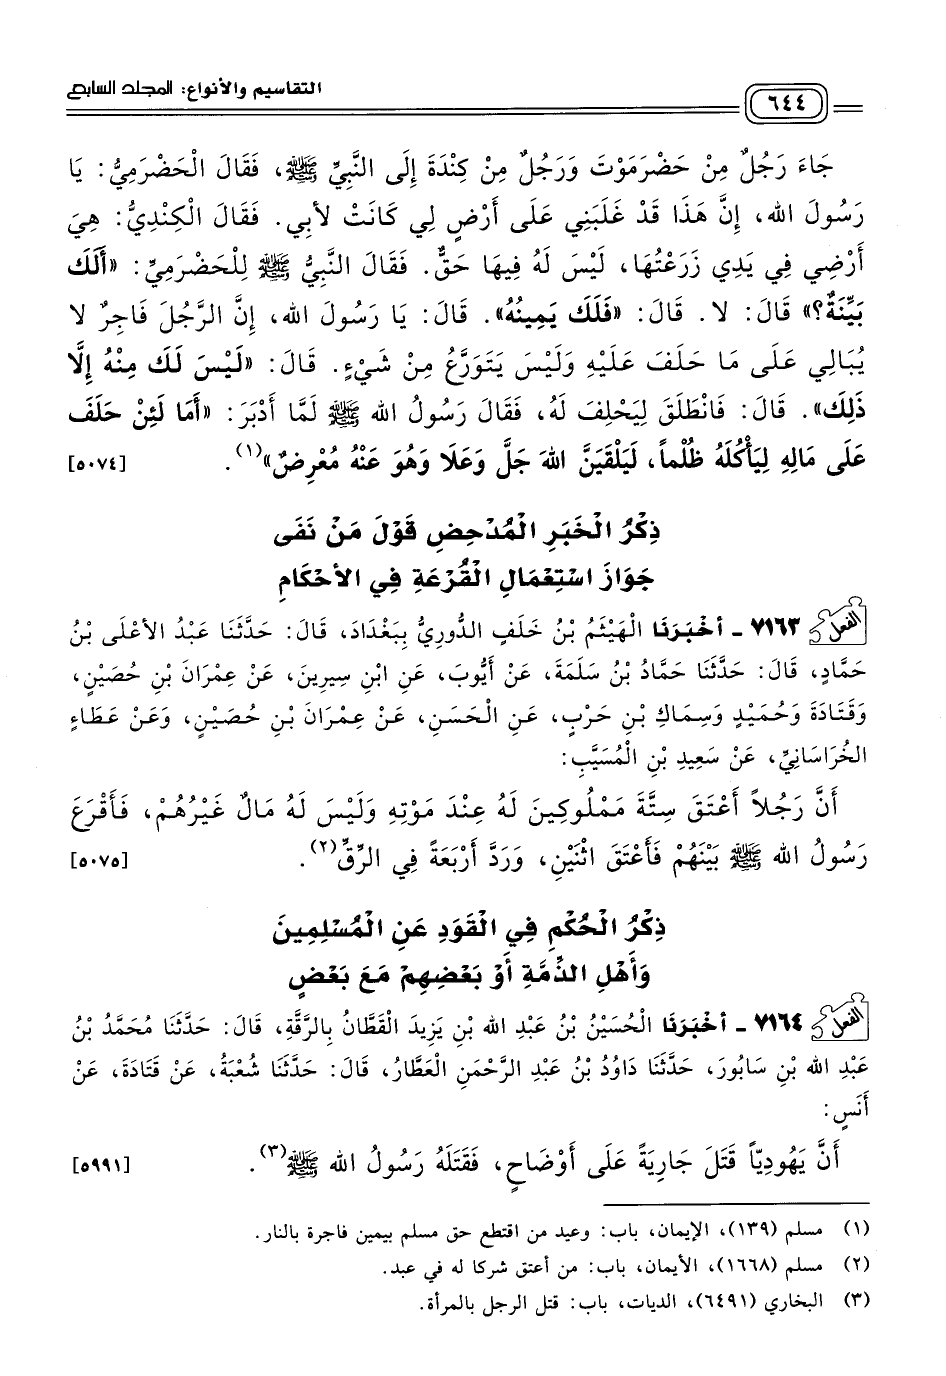 التقاسيم والأنواع: المجلد السابع
٦٤٤
جَاءَ رَجُلٌ مِنْ حَضْرَمَوْتَ وَرَجُلٌ مِنْ كِنْدَةَ إِلَى النَّبِيِّ ﷺ، فَقَالَ الْحَضْرَمِيُّ: يَا
رَسُولَ الله، إِنَّ هَذَا قَدْ غَلَبَنِي عَلَى أَرْضٍ لِي كَانَتْ لأبِي. فَقَالَ الْكِنْدِيُّ: هِيَ
أَرْضِي فِي يَدِي زَرَعْتُهَا، لَيْسَ لَهُ فِيهَا حَقٌّ. فَقَالَ النَّبِيُّ ﷺ لِلْحَضْرَمِيِّ: «أَلَكَ
بَيِّنَةٌ؟» قَالَ: لا. قَالَ: «فَلَكَ يَمِينُهُ». قَالَ: يَا رَسُولَ الله، إِنَّ الرَّجُلَ فَاجِرٌ لا
يُبَالِي عَلَى مَا حَلَفَ عَلَيْهِ وَلَيْسَ يَتَوَرَّعُ مِنْ شَيْءٍ. قَالَ: «لَيْسَ لَكَ مِنْهُ إِلَّا
ذَلِكَ». قَالَ: فَانْطَلَقَ لِيَحْلِفَ لَهُ، فَقَالَ رَسُولُ الله ﷺ لَمَّا أَدْبَرَ: «أَمَا لَئِنْ حَلَفَ
عَلَى مَالِهِ لِيَأْكُلَهُ ظُلْماً، لَيَلْقَيَنَّ اللهَ جَلَّ وَعَلَا وَهُوَ عَنْهُ مُعْرِضٌ»(١). [٥٠٧٤]
ذِكْرُ الْخَبَرِ الْمُدْحِضِ قَوْلَ مَنْ نَفَى
جَوَازَ اسْتِعْمَالِ الْقُرْعَةِ فِي الأحْكَامِ
الفعل ٧١٦٣ - أَخْبَرَنَا الْهَيْثَمُ بْنُ خَلَفٍ الدُّورِيُّ بِبَغْدَادَ، قَالَ: حَدَّثَنَا عَبْدُ الأعْلَى بْنُ
حَمَّادٍ، قَالَ: حَدَّثَنَا حَمَّادُ بْنُ سَلَمَةَ، عَنْ أَيُّوبَ، عَنِ ابْنِ سِيرِينَ، عَنْ عِمْرَانَ بْنِ حُصَيْنٍ،
وَقَتَادَةَ وَحُمَيْدٍ وَسِمَاكِ بْنِ حَرْبٍ، عَنِ الْحَسَنِ، عَنْ عِمْرَانَ بْنِ حُصَيْنٍ، وَعَنْ عَطَاءٍ
الخُرَاسَانِيِّ، عَنْ سَعِيدِ بْنِ الْمُسَيَّبِ:
أَنَّ رَجُلاً أَعْتَقَ سِتَّةَ مَمْلُوكِينَ لَهُ عِنْدَ مَوْتِهِ وَلَيْسَ لَهُ مَالٌ غَيْرُهُمْ، فَأَقْرَعَ
رَسُولُ الله ﷺ بَيْنَهُمْ فَأَعْتَقَ اثْنَيْنِ، وَرَدَّ أَرْبَعَةً فِي الرِّقِّ(٢). [٥٠٧٥]
ذِكْرُ الْحُكْمِ فِي الْقَوَدِ عَنِ الْمُسْلِمِينَ
وَأَهْلِ الذِّمَّةِ أَوْ بَعْضِهِمْ مَعَ بَعْضٍ
الفعل ٧١٦٤ - أَخْبَرَنَا الْحُسَيْنُ بْنُ عَبْدِ الله بْنِ يَزِيدَ الْقَطَّانُ بِالرَّقَّةِ، قَالَ: حَدَّثَنَا مُحَمَّدُ بْنُ
عَبْدِ الله بْنِ سَابُورَ، حَدَّثَنَا دَاوُدُ بْنُ عَبْدِ الرَّحْمَنِ الْعَطَّارُ، قَالَ: حَدَّثَنَا شُعْبَةُ، عَنْ قَتَادَةَ، عَنْ
أَنَسٍ:
أَنَّ يَهُودِيّاً قَتَلَ جَارِيَةً عَلَى أَوْضَاحٍ، فَقَتَلَهُ رَسُولُ الله ﷺ(٣). [٥٩٩١]
(١) مسلم (١٣٩)، الإيمان، باب: وعيد من اقتطع حق مسلم بيمين فاجرة بالنار.
(٢) مسلم (١٦٦٨)، الأيمان، باب: من أعتق شركا له في عبد.
(٣) البخاري (٦٤٩١)، الديات، باب: قتل الرجل بالمرأة.